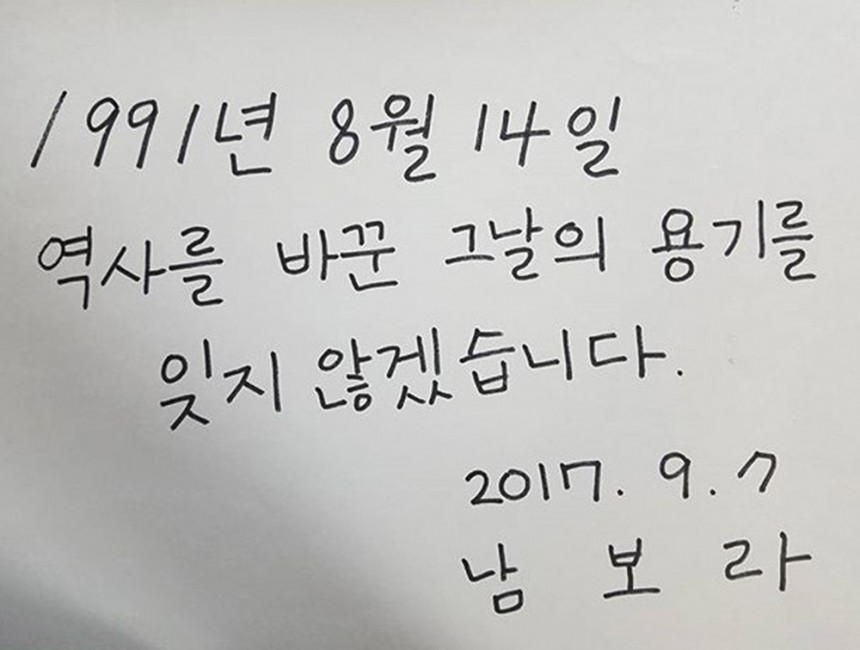 1991년 8월 14일
역사를 바꾼 그날의 용기를
잊지 않겠습니다.
2017. 9. 7
남 보 라